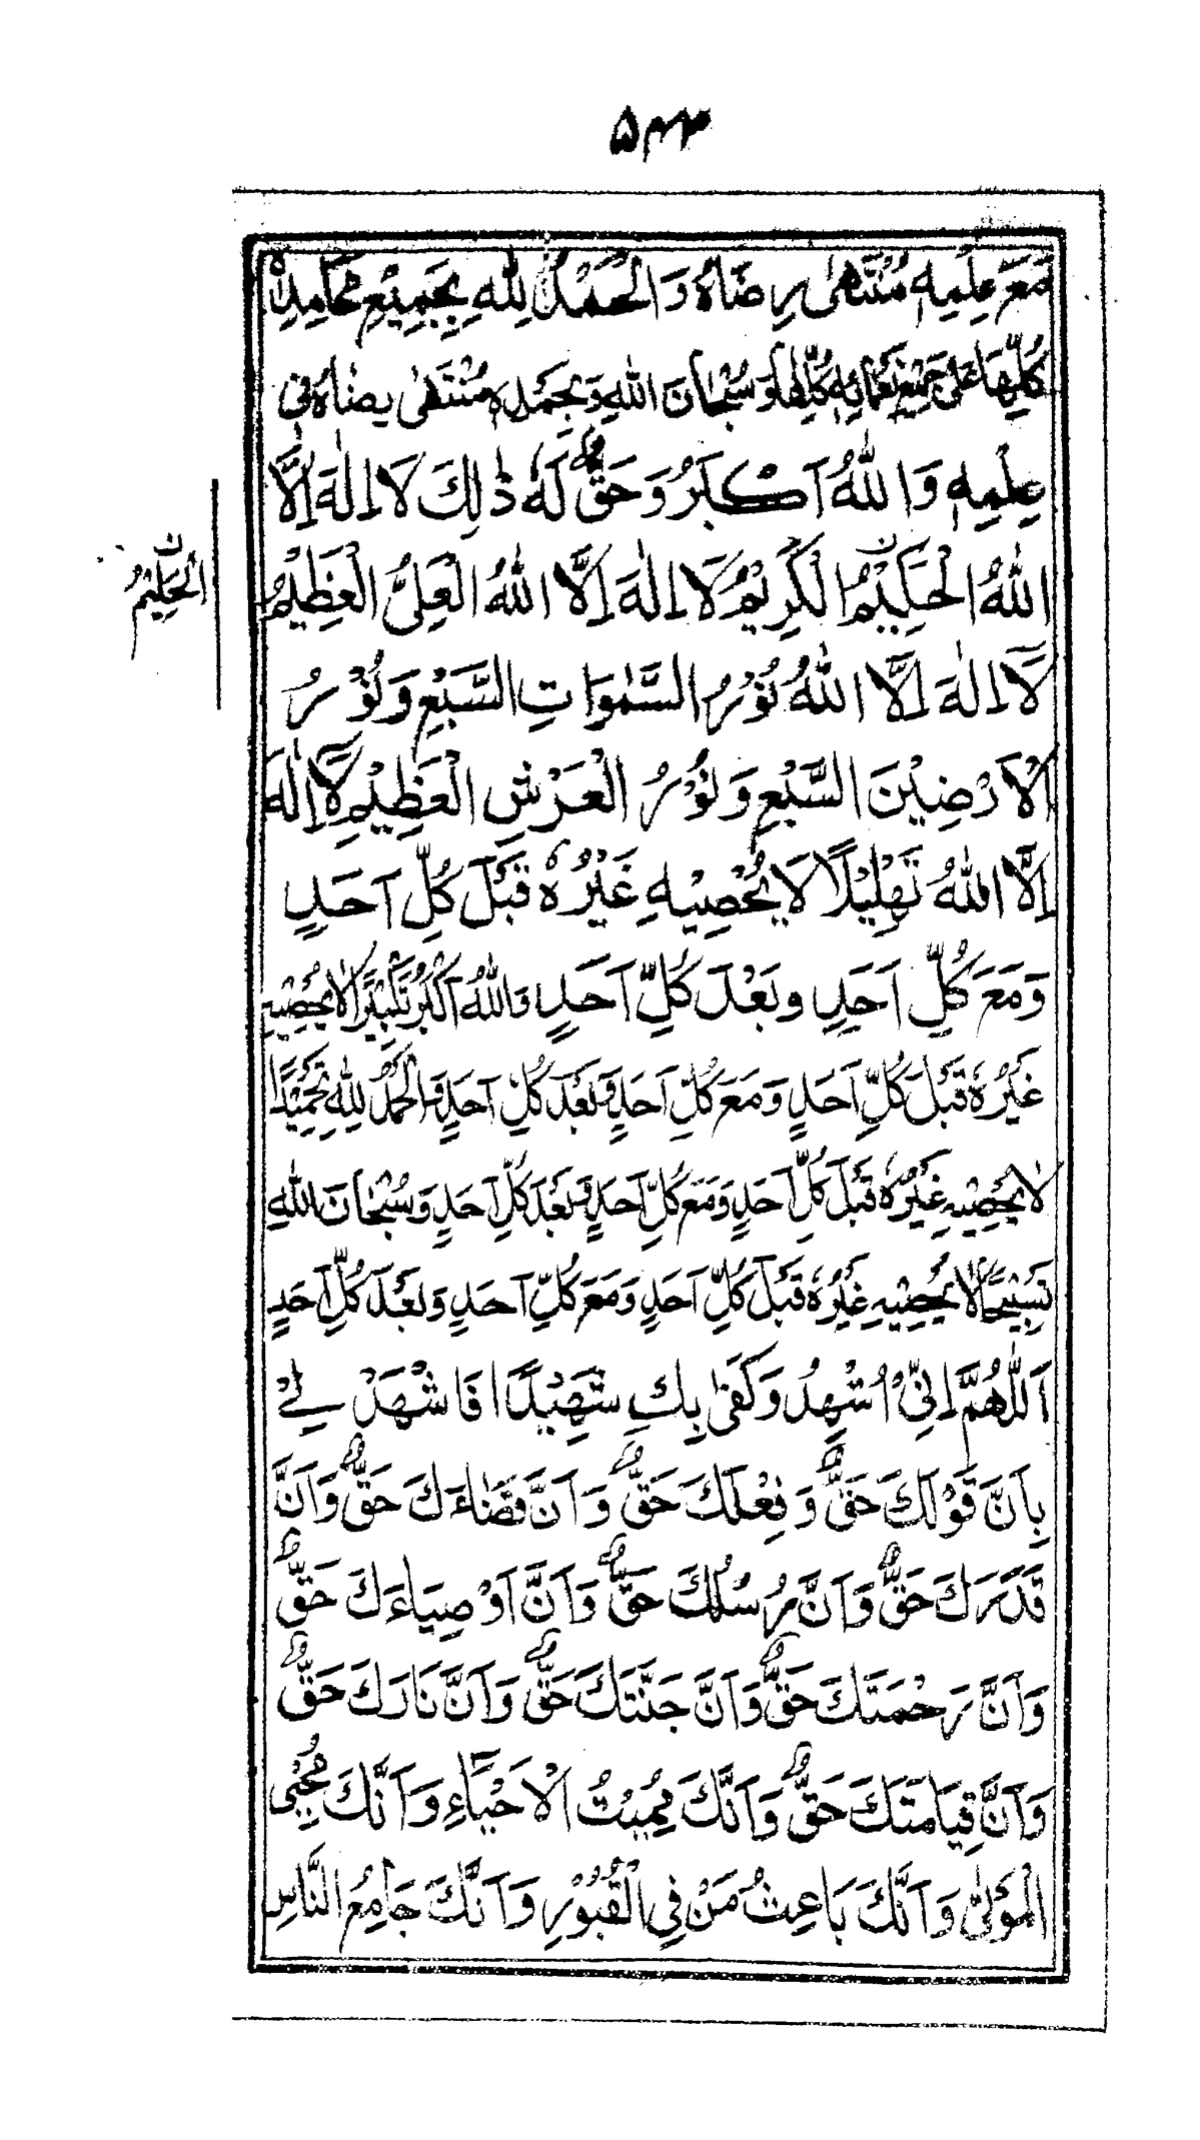 ۵۴۳
مَعَ عِلْمِهٖ مُنْتَهٰى رِضَاهُ وَالْحَمْدُ لِلّٰهِ بِجَمِيْعِ مَحَامِدِهٖ
كُلِّهَا عَلٰى جَمِيْعِ نَعْمَائِهٖ كُلِّهَا وَسُبْحَانَ اللّٰهِ وَبِحَمْدِهٖ مُنْتَهٰى رِضَاهُ فِي
عِلْمِهٖ وَاللّٰهُ اَكْبَرُ وَحَقٌّ لَهٗ ذٰلِكَ لَا اِلٰهَ اِلَّا
اللّٰهُ الْحَكِيْمُ الْكَرِيْمُ لَا اِلٰهَ اِلَّا اللّٰهُ الْعَلِىُّ الْعَظِيْمُ
الْحَلِيْمُ ن
لَآ اِلٰهَ اِلَّا اللّٰهُ نُوْرُ السَّمٰوَاتِ السَّبْعِ وَنُوْرُ
الْاَرْضِيْنَ السَّبْعِ وَنُوْرُ الْعَرْشِ الْعَظِيْمِ لَآ اِلٰهَ
اِلَّا اللّٰهُ تَهْلِيْلًا لَا يُحْصِيْهِ غَيْرُهٗ قَبْلَ كُلِّ اَحَدٍ
وَمَعَ كُلِّ اَحَدٍ وَبَعْدَ كُلِّ اَحَدٍ وَاللّٰهُ اَكْبَرُ تَكْبِيْرًا لَا يُحْصِيْهِ
غَيْرُهٗ قَبْلَ كُلِّ اَحَدٍ وَمَعَ كُلِّ اَحَدٍ وَبَعْدَ كُلِّ اَحَدٍ وَالْحَمْدُ لِلّٰهِ تَحْمِيْدًا
لَا يُحْصِيْهِ غَيْرُهٗ قَبْلَ كُلِّ اَحَدٍ وَمَعَ كُلِّ اَحَدٍ وَبَعْدَ كُلِّ اَحَدٍ وَسُبْحَانَ اللّٰهِ
تَسْبِيْحًا لَا يُحْصِيْهِ غَيْرُهٗ قَبْلَ كُلِّ اَحَدٍ وَمَعَ كُلِّ اَحَدٍ وَبَعْدَ كُلِّ اَحَدٍ
اَللّٰهُمَّ اِنِّىْ اُشْهِدُ وَكَفٰى بِكَ شَهِيْدًا فَاشْهَدْ لِىْ
بِاَنَّ قَوْلَكَ حَقٌّ وَفِعْلَكَ حَقٌّ وَاَنَّ قَضَاءَكَ حَقٌّ وَاَنَّ
قَدَرَكَ حَقٌّ وَاَنَّ رُسُلَكَ حَقٌّ وَاَنَّ اَوْصِيَاءَكَ حَقٌّ
وَاَنَّ رَحْمَتَكَ حَقٌّ وَاَنَّ جَنَّتَكَ حَقٌّ وَاَنَّ نَارَكَ حَقٌّ
وَاَنَّ قِيَامَتَكَ حَقٌّ وَاَنَّكَ مُمِيْتُ الْاَحْيَاءِ وَاَنَّكَ مُحْيِى
الْمَوْتٰى وَاَنَّكَ بَاعِثُ مَنْ فِى الْقُبُوْرِ وَاَنَّكَ جَامِعُ النَّاسِ